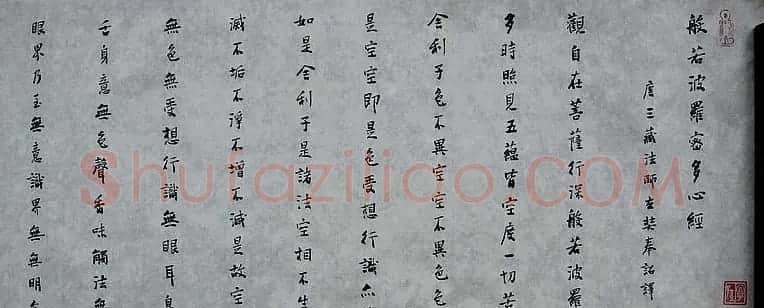 般若波羅蜜多心經
唐三藏法師玄奘奉詔譯
觀自在菩薩行深般若波羅
多時照見五蘊皆空度一切苦
舍利子色不異空空不異色色
是空空即是色受想行識亦
如是舍利子是諸法空相不生
滅不垢不淨不增不減是故空
無色無受想行識無眼耳鼻
舌身意無色聲香味觸法無
眼界乃至無意識界無無明
Shufaziliao.COM